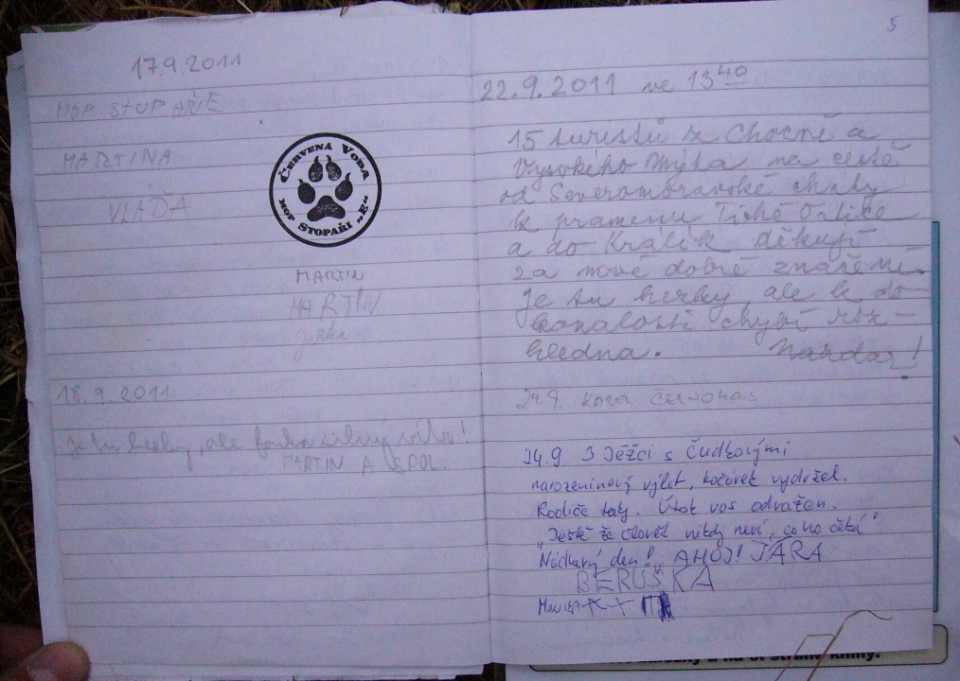 17.9.2011
MOP STOPAŘIE
MARTINA
VLAĎA
ČERVENÁ VODA
MOP STOPAŘI „E"
MARTIN
MARTIN
Jirka
18.9.2011
Je tu hezky, ale fouká silný vítr!
MARTIN A SPOL.
5
22.9.2011 ve 13 40
15 turistů z Chocně a
Vysokého Mýta na cestě
od Severomoravské chaty
k prameni Tiché Orlice
a do Králík děkují
za nové dobré značení.
Je tu hezky, ale k do
konalosti chybí roz-
hledna. Nazdar!
24.9.
24.9. 3 Ježci s Čudkovými
narozeninový výlet, kočárek vydržel.
Rodiče taky. Útok vos odražen.
„Ještě že člověk nikdy neví, co ho čeká"
Nádherný den! AHOJ! JÁRA
BERUŠKA